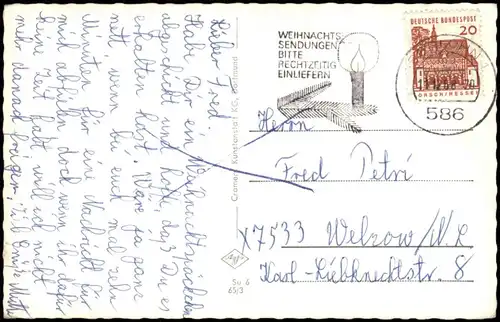 Lieber Fred
Habe Dir ein Weihnachtspäckchen
abgeschickt und hoffe, daß Du es
erhalten hast. Wäre ja ganz
nett wenn bei euch mal zehn
Minuten für eine Nachricht für
mich abfielen doch wenn ihr dafür
keine Zeit habt will ich nicht
mehr danach fragen,
Cramers Kunstanstalt KG, Dortmund
WEIHNACHTS-
SENDUNGEN
BITTE
RECHTZEITIG
EINLIEFERN
DEUTSCHE BUNDESPOST
20
LORSCH/HESSEN
586
Herrn
Fred Petri
X7533 Welzow/N.L.
Karl-Liebknechtstr. 8
Su 6
65/3